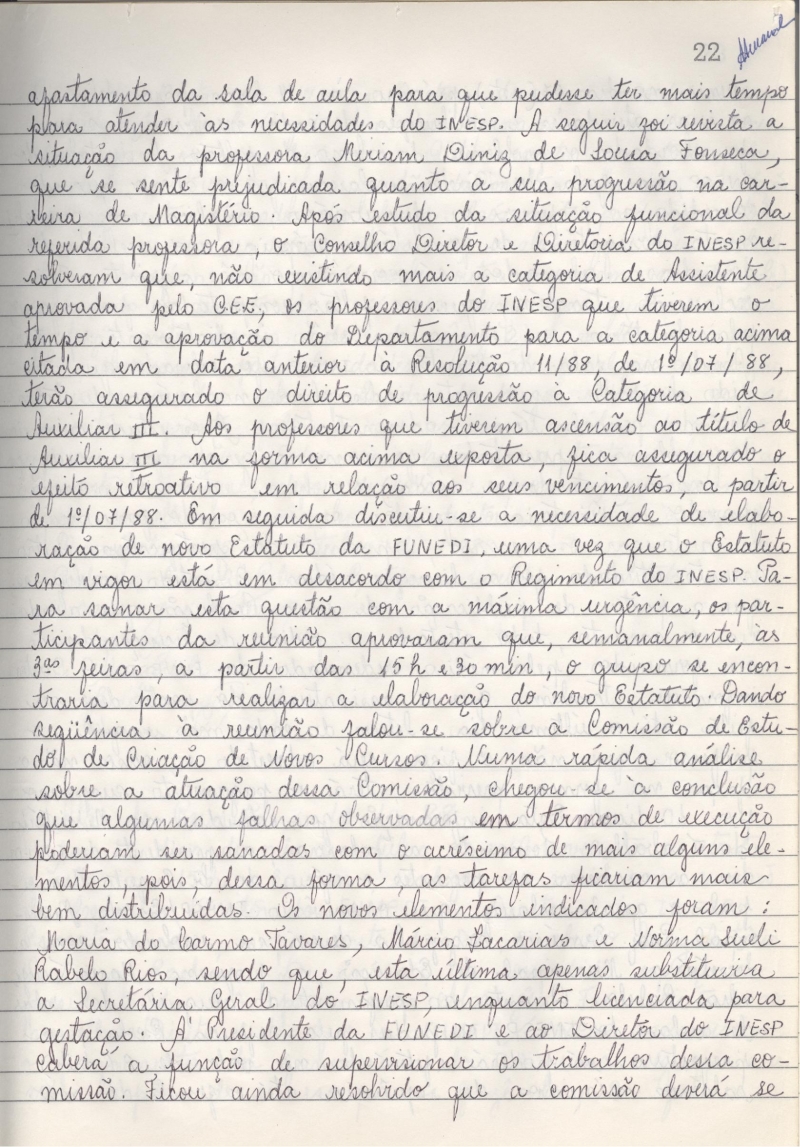 22
afastamento da sala de aula para que pudesse ter mais tempo
para atender às necessidades do INESP. A seguir foi revista a
situação da professora Meriam Diniz de Sousa Fonseca,
que se sente prejudicada quanto a sua progressão na car-
reira de Magistério. Após estudo da situação funcional da
referida professora, o Conselho Diretor e Diretoria do INESP re-
solveram que, não existindo mais a categoria de Assistente
aprovada pelo C.E.E, os professores do INESP que tiverem o
tempo e a aprovação do Departamento para a categoria acima
citada em data anterior à Resolução 11/88, de 1º/07/88,
terão assegurado o direito de progressão à Categoria de
Auxiliar III. Aos professores que tiverem ascensão ao título de
Auxiliar III na forma acima exposta, fica assegurado o
efeito retroativo em relação aos seus vencimentos, a partir
de 1º/07/88. Em seguida discutiu-se a necessidade de elabo-
ração de novo Estatuto da FUNEDI, uma vez que o Estatuto
em vigor está em desacordo com o Regimento do INESP. Pa-
ra sanar esta questão com a máxima urgência, os par-
ticipantes da reunião aprovaram que, semanalmente, às
3as feiras, a partir das 15h e 30 min, o grupo se encon-
traria para realizar a elaboração do novo Estatuto. Dando
seqüência à reunião falou-se sobre a Comissão de Estu-
do de Criação de Novos Cursos. Numa rápida análise
sobre a atuação dessa Comissão, chegou-se à conclusão
que algumas falhas observadas em termos de execução
poderiam ser sanadas com o acréscimo de mais alguns ele-
mentos, pois, dessa forma, as tarefas ficariam mais
bem distribuídas. Os novos elementos indicados foram:
Maria do Carmo Tavares, Márcio Zacarias e Norma Sueli
Rabelo Rios, sendo que, esta última apenas substituiria
a Secretária Geral do INESP, enquanto licenciada para
gestação. À Presidente da FUNEDI e ao Diretor do INESP
caberá a função de supervisionar os trabalhos dessa co-
missão. Ficou ainda resolvido que a comissão deverá se